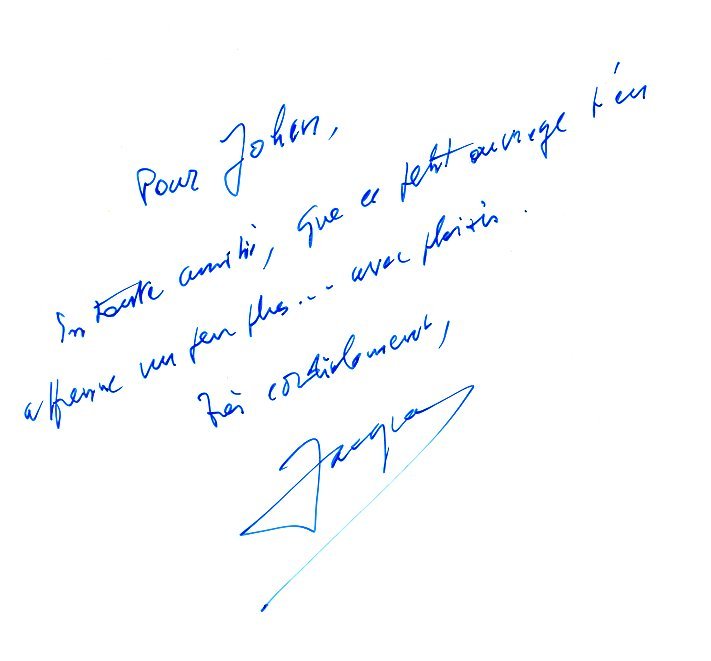 Pour Johan,
En toute amitié, que ce petit ouvrage t'en
apprenne un peu plus... avec plaisir.
Très cordialement,
Jacques